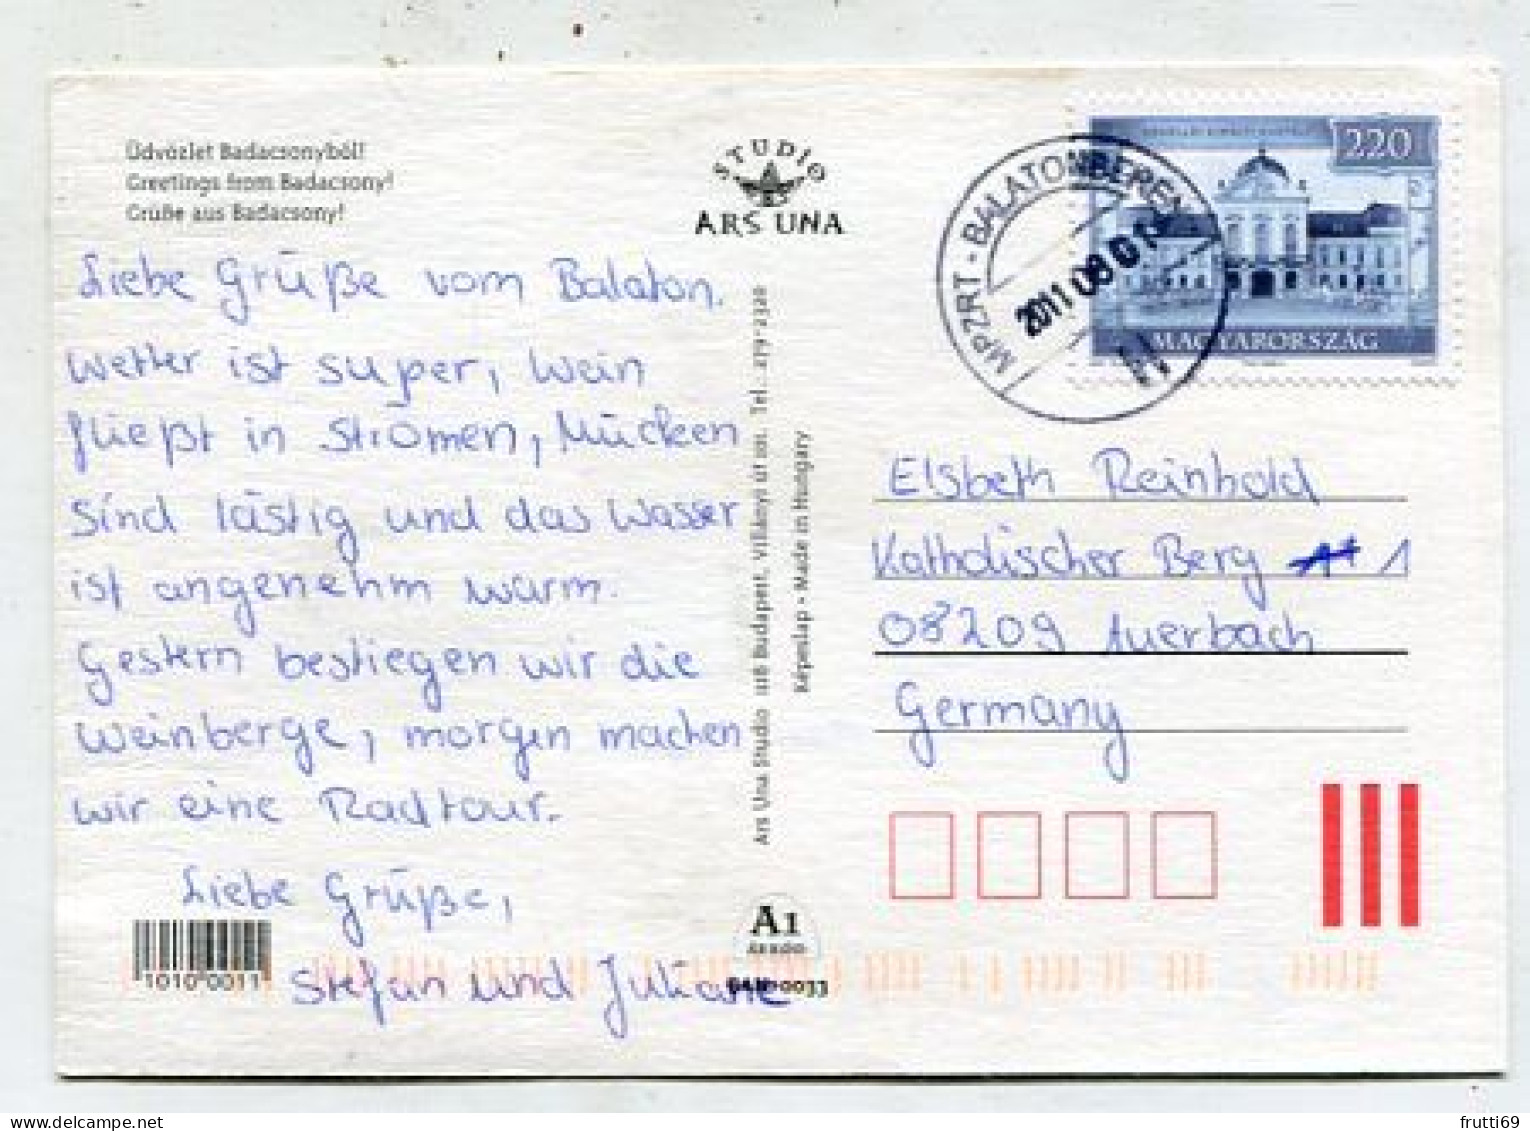 Üdvözlet Badacsonyból!
Greetings from Badacsony!
Grüße aus Badacsony!
Liebe Grüße vom Balaton.
Wetter ist super, Wein
fließt in Strömen, Mücken
sind lästig und das Wasser
ist angenehm warm.
Gestern bestiegen wir die
Weinberge, morgen machen
wir eine Radtour.
Liebe Grüße,
Stefan und Juliane
1010 0011
STUDIO
ARS UNA
Ars Una Studio 118 Budapest, Villányi út 101. Tel.: 279-2320
Képeslap - Made in Hungary
A1
0033
MPZRT - BALATONBERÉNY
2011 08 01
220
MAGYARORSZÁG
Elsbeth Reinhold
Katholischer Berg 1
08209 Auerbach
Germany
frutti69